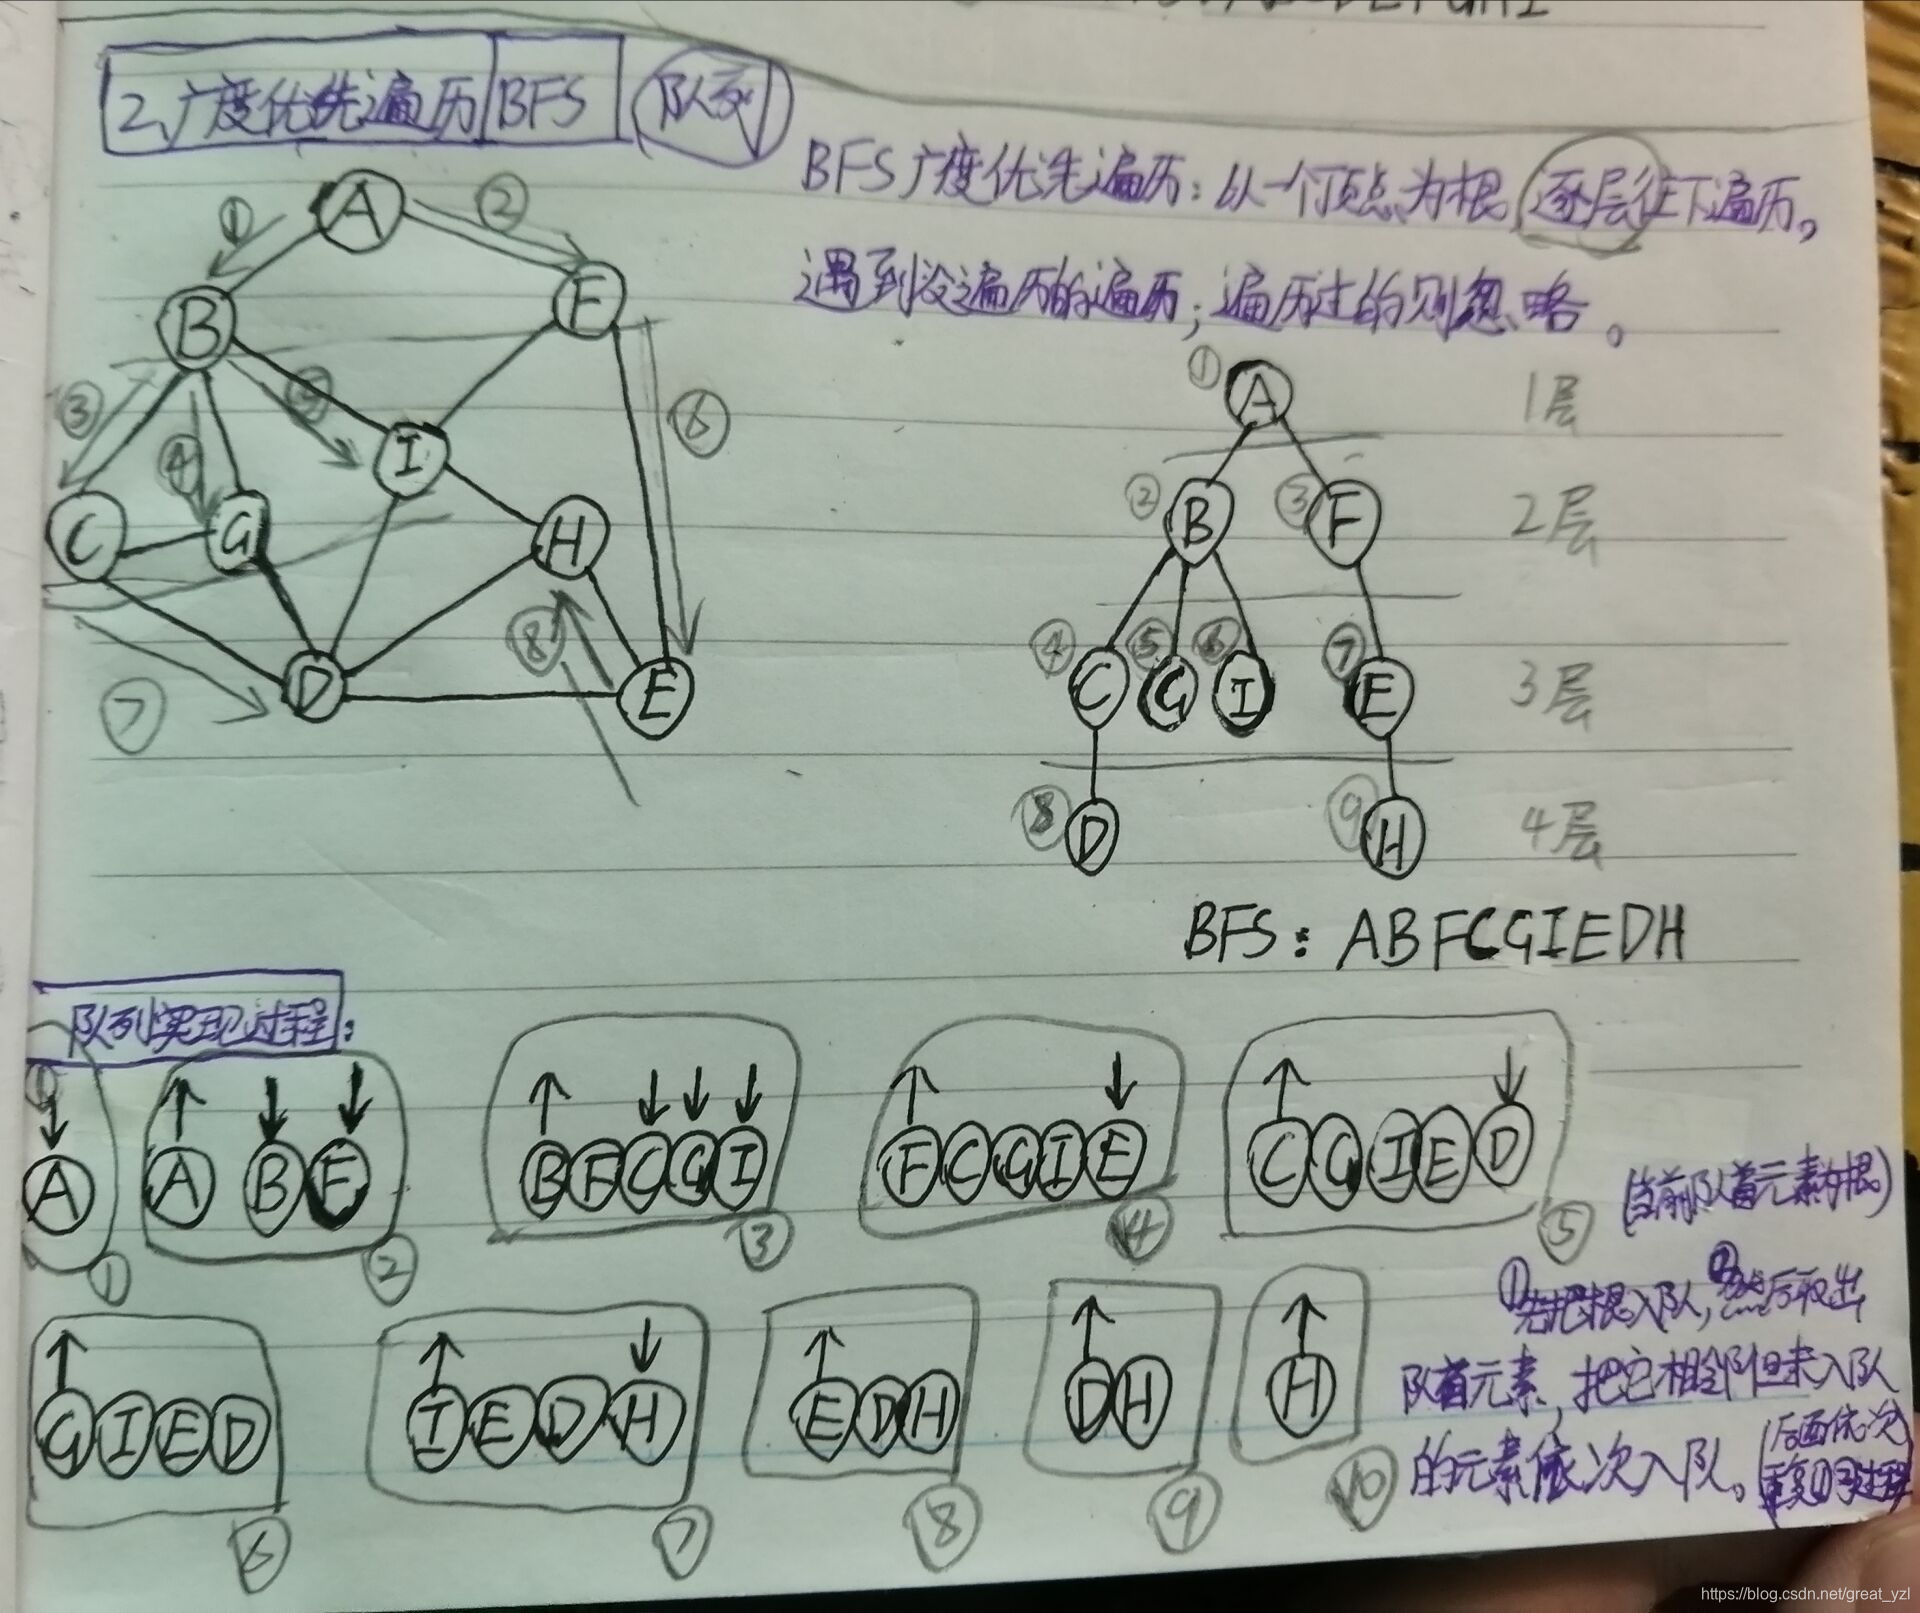 2、广度优先遍历 BFS 队列
BFS广度优先遍历：以一个顶点为根，逐层往下遍历。
遇到没遍历的遍历；遍历过的则忽略。
A
① ②
B F
③ ④ ⑤ ⑥
I
C G H
⑧
D E
⑦
① A 1层
② B ③ F 2层
④ ⑤ ⑥ ⑦
C G I E 3层
⑧ D ⑨ H 4层
BFS：ABFCGIEDH
队列实现过程：
A A B F B F C G I F C G I E C G I E D
① ② ③ ④ ⑤
(当前队首元素为根)
G I E D I E D H E D H D H H
⑥ ⑦ ⑧ ⑨ 10
①先把根入队，②然后取出
队首元素，把它相邻但未入队
的元素依次入队。
后面依次
https://blog.csdn.net/great_yzl